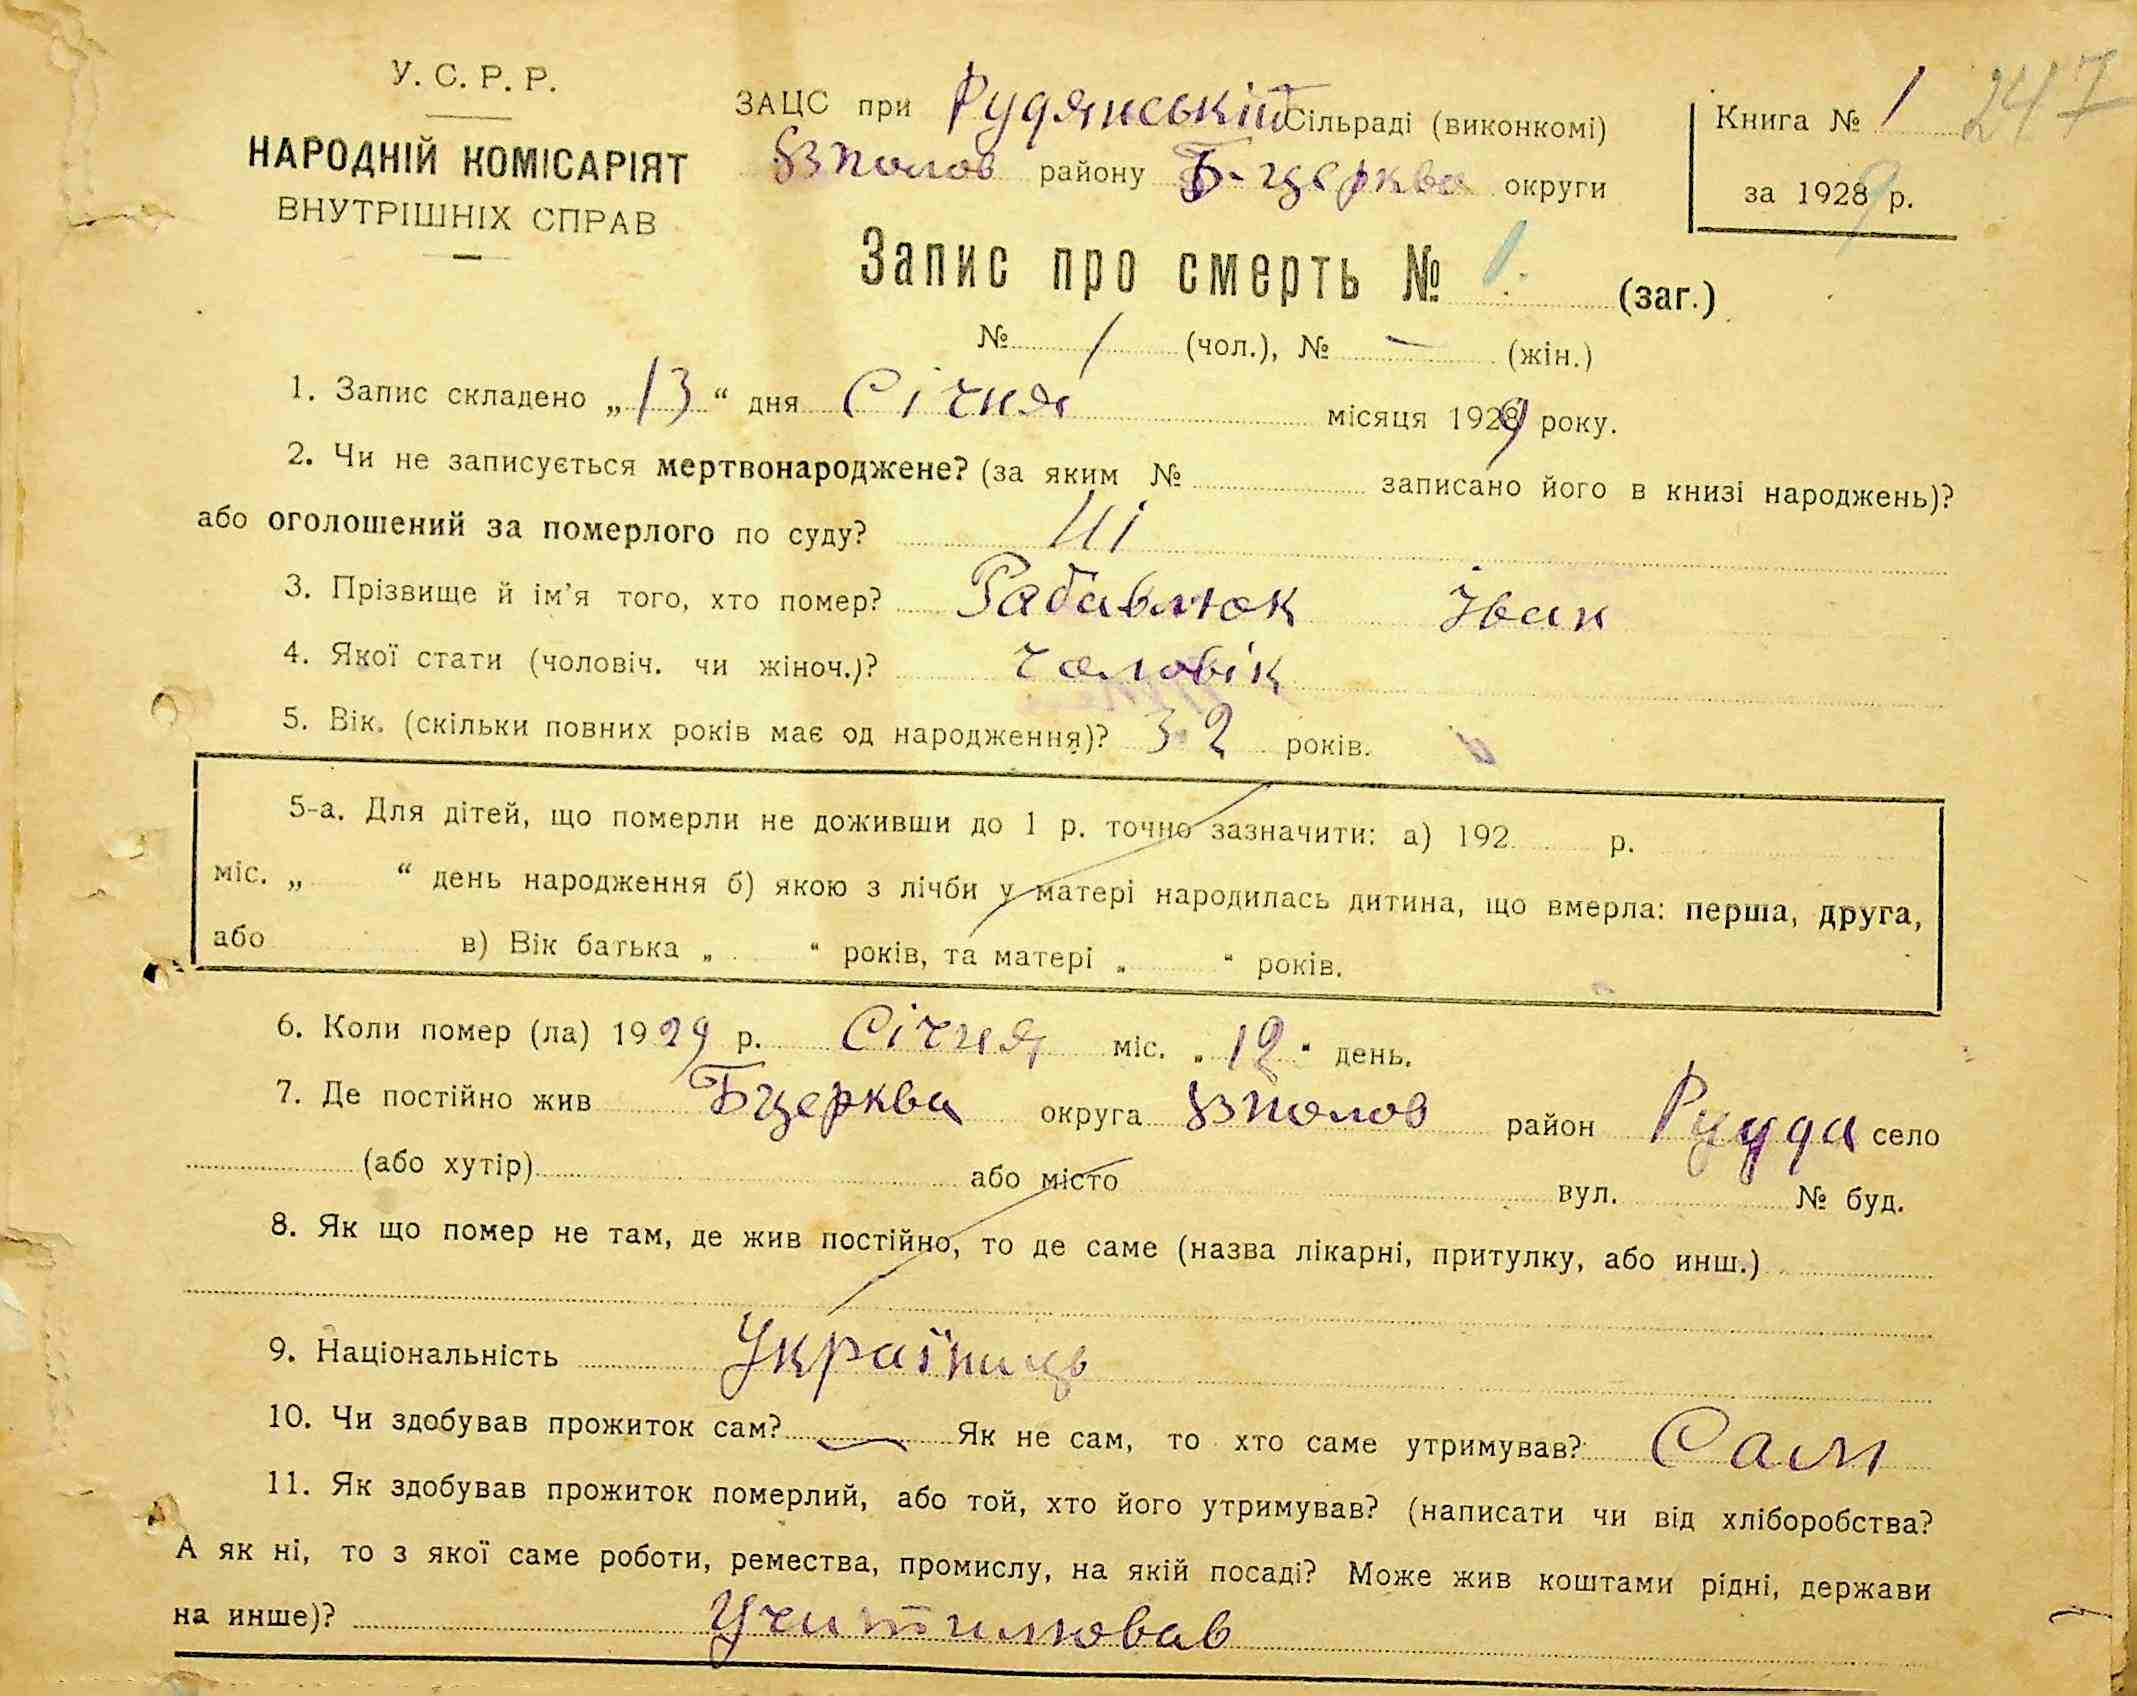 У. С. Р. Р.
НАРОДНІЙ КОМІСАРІЯТ
ВНУТРІШНІХ СПРАВ
ЗАЦС при Рудянській Сільраді (виконкомі)
району Б-церква округи
Книга № 1 247
за 1929 р.
Запис про смерть № 1. (заг.)
№ 1 (чол.), № — (жін.)
1. Запис складено „13“ дня Січня місяця 1929 року.
2. Чи не записується мертвонароджене? (за яким № записано його в книзі народжень)?
або оголошений за померлого по суду? Ні
3. Прізвище й ім'я того, хто помер? Рабавлюк Іван
4. Якої стати (чоловіч. чи жіноч.)? чоловік
5. Вік. (скільки повних років має од народження)? 32 років.
5-а. Для дітей, що померли не доживши до 1 р. точно зазначити: а) 192 р.
міс. „ “ день народження б) якою з лічби у матері народилась дитина, що вмерла: перша, друга,
або в) Вік батька „ “ років, та матері „ “ років.
6. Коли помер (ла) 1929 р. Січня міс. „12“ день.
7. Де постійно жив Бцерква округа район село
(або хутір) або місто вул. № буд.
8. Як що помер не там, де жив постійно, то де саме (назва лікарні, притулку, або инш.)
9. Національність Україниць
10. Чи здобував прожиток сам? — Як не сам, то хто саме утримував? Сам
11. Як здобував прожиток померлий, або той, хто його утримував? (написати чи від хліборобства?
А як ні, то з якої саме роботи, ремества, промислу, на якій посаді? Може жив коштами рідні, держави
на инше)? Учитилював